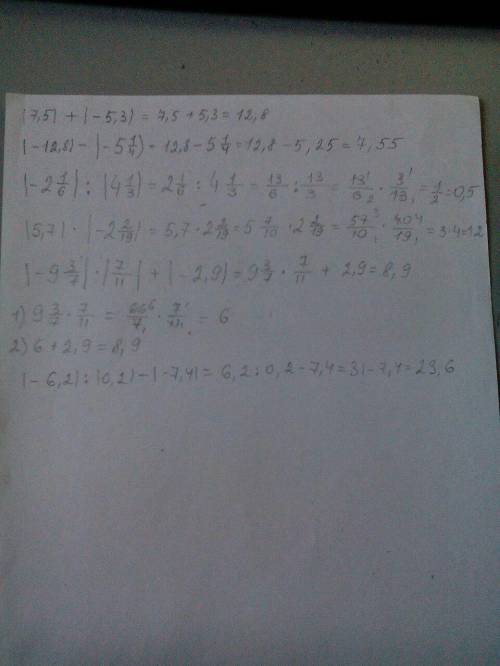 |7,5| + |-5,3| = 7,5 + 5,3 = 12,8
|-12,8| - |-5 1/4| = 12,8 - 5 1/4 = 12,8 - 5,25 = 7,55
|-2 1/6| : |4 1/3| = 2 1/6 : 4 1/3 = 13/6 : 13/3 = 13/6 · 3/13 = 1/2 = 0,5
|5,7| · |-2 2/19| = 5,7 · 2 2/19 = 5 7/10 · 2 2/19 = 57/10 · 40/19 = 3·4 = 12
|-9 3/7| · |7/11| + |-2,9| = 9 3/7 · 7/11 + 2,9 = 8,9
1) 9 3/7 · 7/11 = 66/7 · 7/11 = 6
2) 6 + 2,9 = 8,9
|-6,2| : |0,2| - |-7,4| = 6,2 : 0,2 - 7,4 = 31 - 7,4 = 23,6